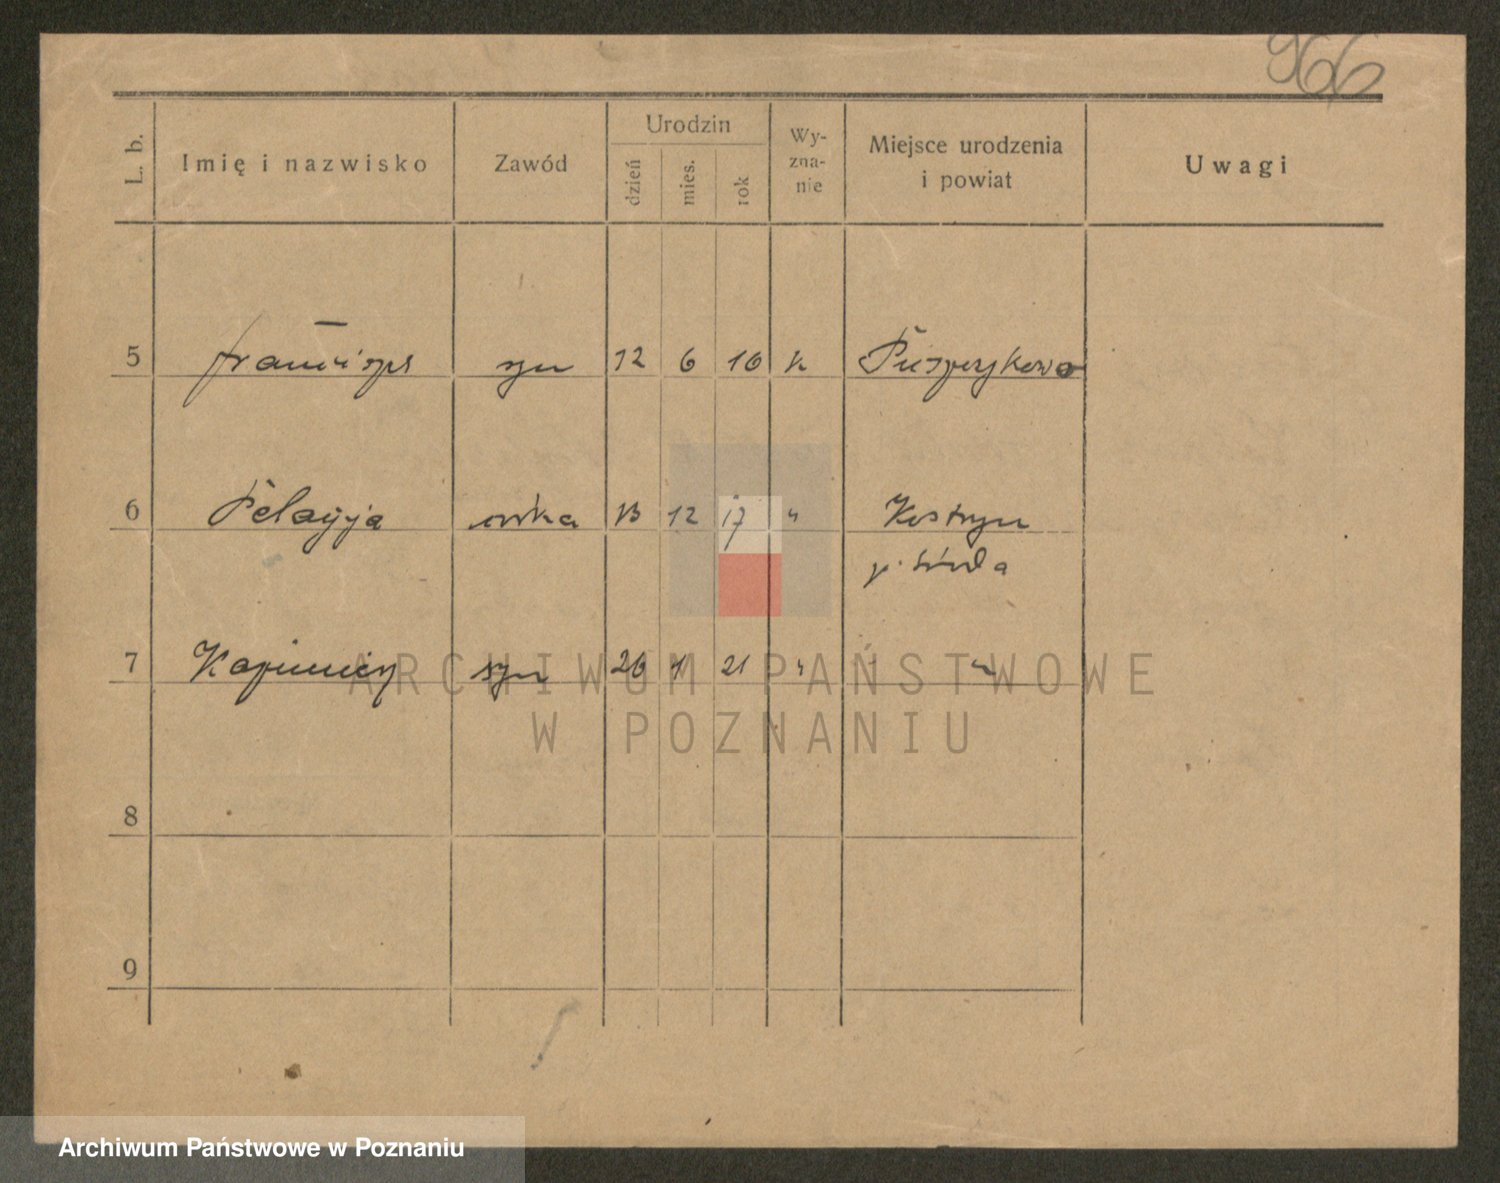 966
L. b. Imię i nazwisko Zawód Urodzin dzień mies. rok Wy-zna-nie Miejsce urodzenia i powiat Uwagi
5 Franciszek syn 12 6 10 k
6 Pelagja córka 13 12 17 " Kostrzyn
p. Środa
7 Kazimierz syn 26 1 21 " "
8
9
ARCHIWUM PAŃSTWOWE
W POZNANIU
Archiwum Państwowe w Poznaniu